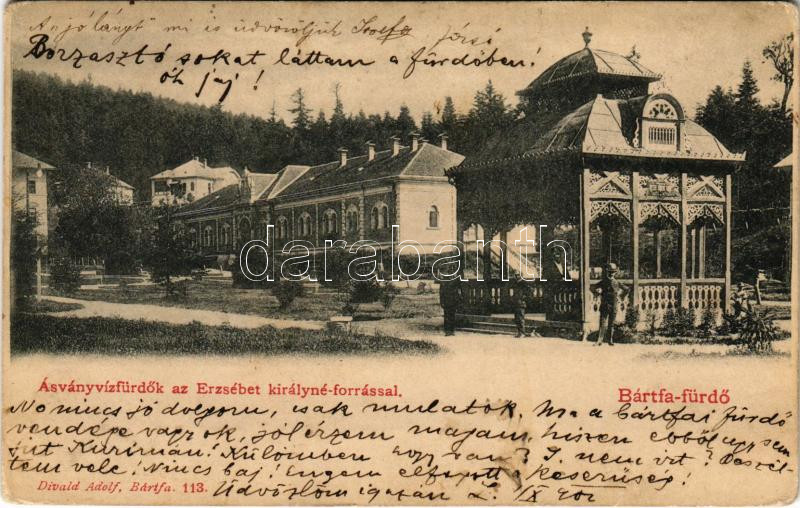 "A jó lányt" mi is üdvözöljük Jozefa Józsi
Borzasztó sokat láttam a fürdőben!
óh jaj!
darabanth.com
Ásványvízfürdők az Erzsébet királyné-forrással.
Bártfa-fürdő
No nincs jó dolgom, csak mulatok. Ma a bártfai fürdő
vendége vagyok, jól érzem magam, hiszen ebből úgy sem
jut Kurimán! Külömben hogy van? J. nem írt? Beszél-
tem vele! Nincs baj! Engem elfogott a keserűség!
Üdvözlöm igazán L. IX
Divald Adolf, Bártfa. 113.